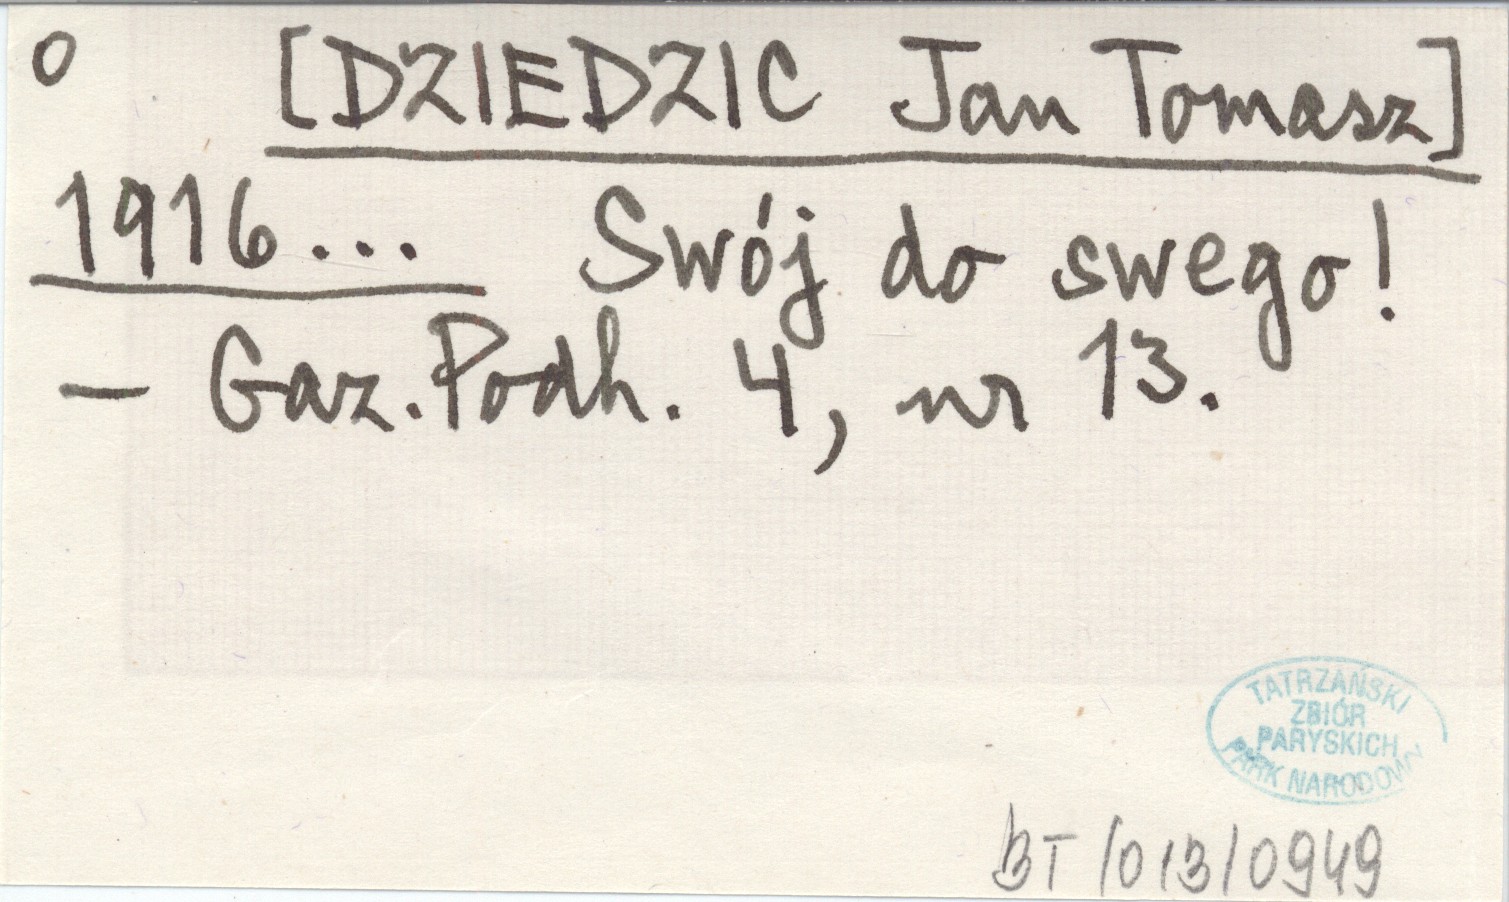 o [DZIEDZIC Jan Tomasz]
1916... Swój do swego!
– Gaz. Podh. 4, nr 13.
TATRZAŃSKI
ZBIÓR
PARYSKICH
PARK NARODOWY
BT/013/0949